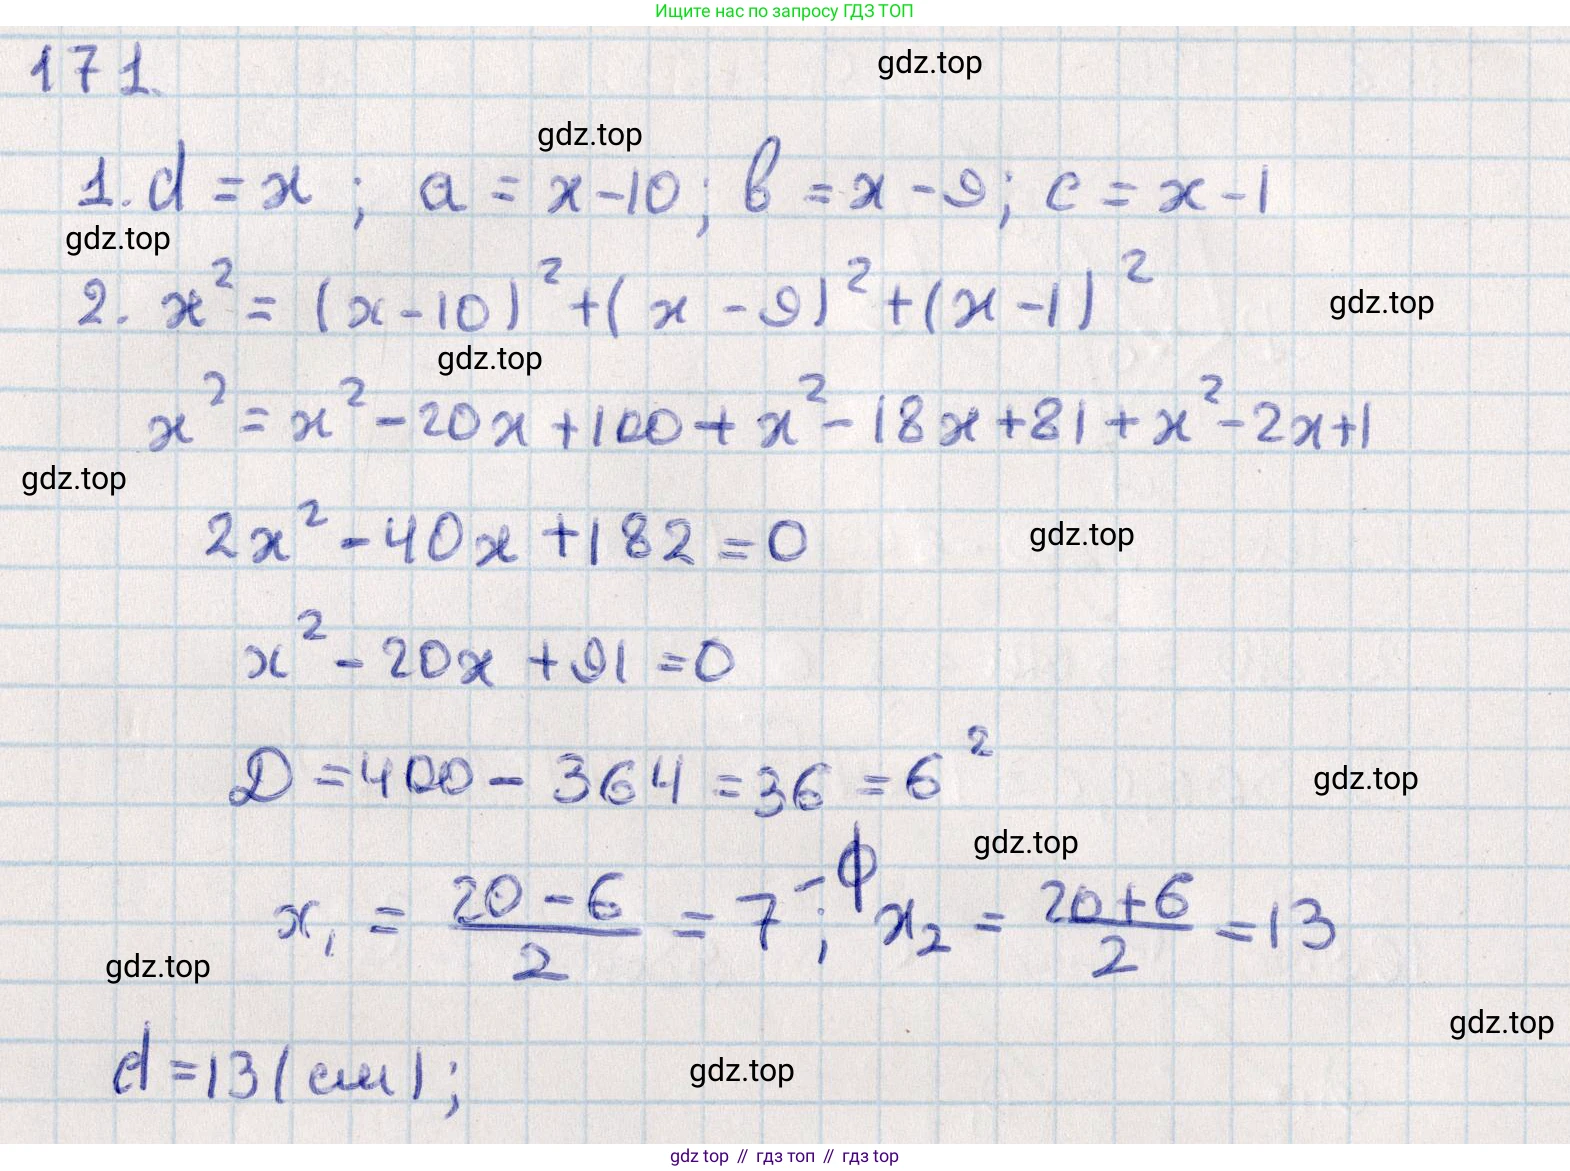 Ищите нас по запросу ГДЗ ТОП
171.
gdz.top
gdz.top
1. d = x ; a = x-10; b = x-9; c = x-1
gdz.top
2. x² = (x-10)² + (x-9)² + (x-1)²
gdz.top
gdz.top
x² = x² - 20x + 100 + x² - 18x + 81 + x² - 2x + 1
gdz.top
2x² - 40x + 182 = 0
gdz.top
x² - 20x + 91 = 0
D = 400 - 364 = 36 = 6²
gdz.top
gdz.top
x₁ = (20-6)/2 = 7 - ф; x₂ = (20+6)/2 = 13
gdz.top
gdz.top
d = 13 (см);
gdz.top
gdz top // гдз топ // гдз top